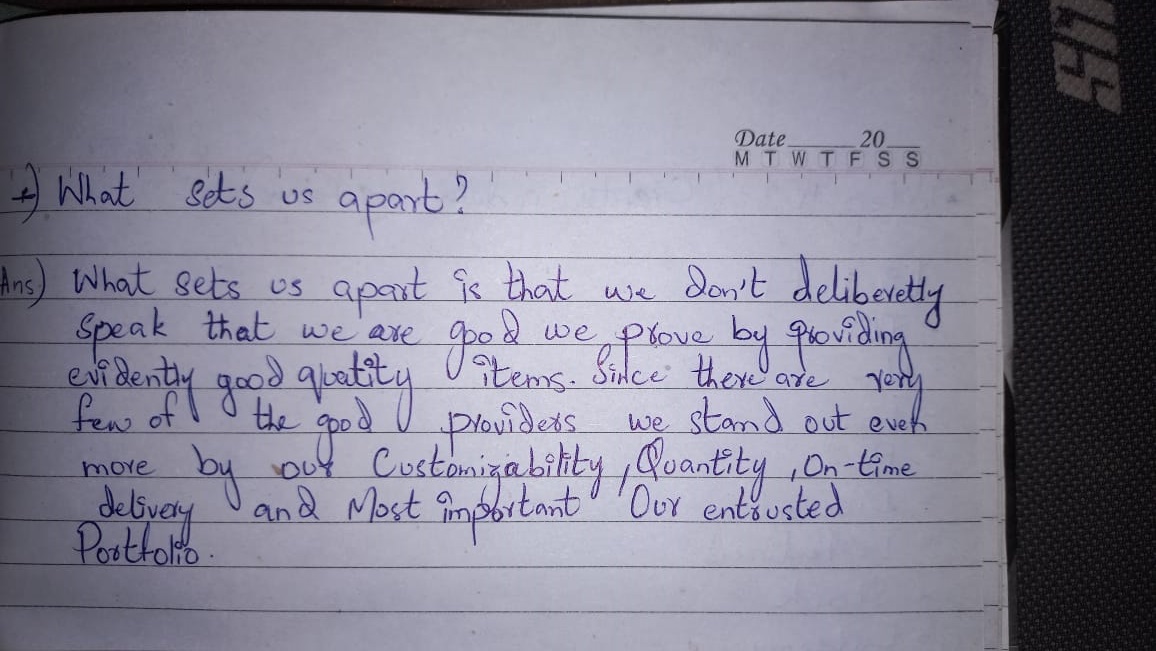 Date 20
M T W T F S S
What sets us apart?
Ans) What sets us apart is that we don't deliberetly
speak that we are good we prove by providing
evidently good quatity items. Since there are very
few of the good providers we stand out even
more by our Customizability, Quantity, On-time
delivery and Most important Our entrusted
Portfolio.